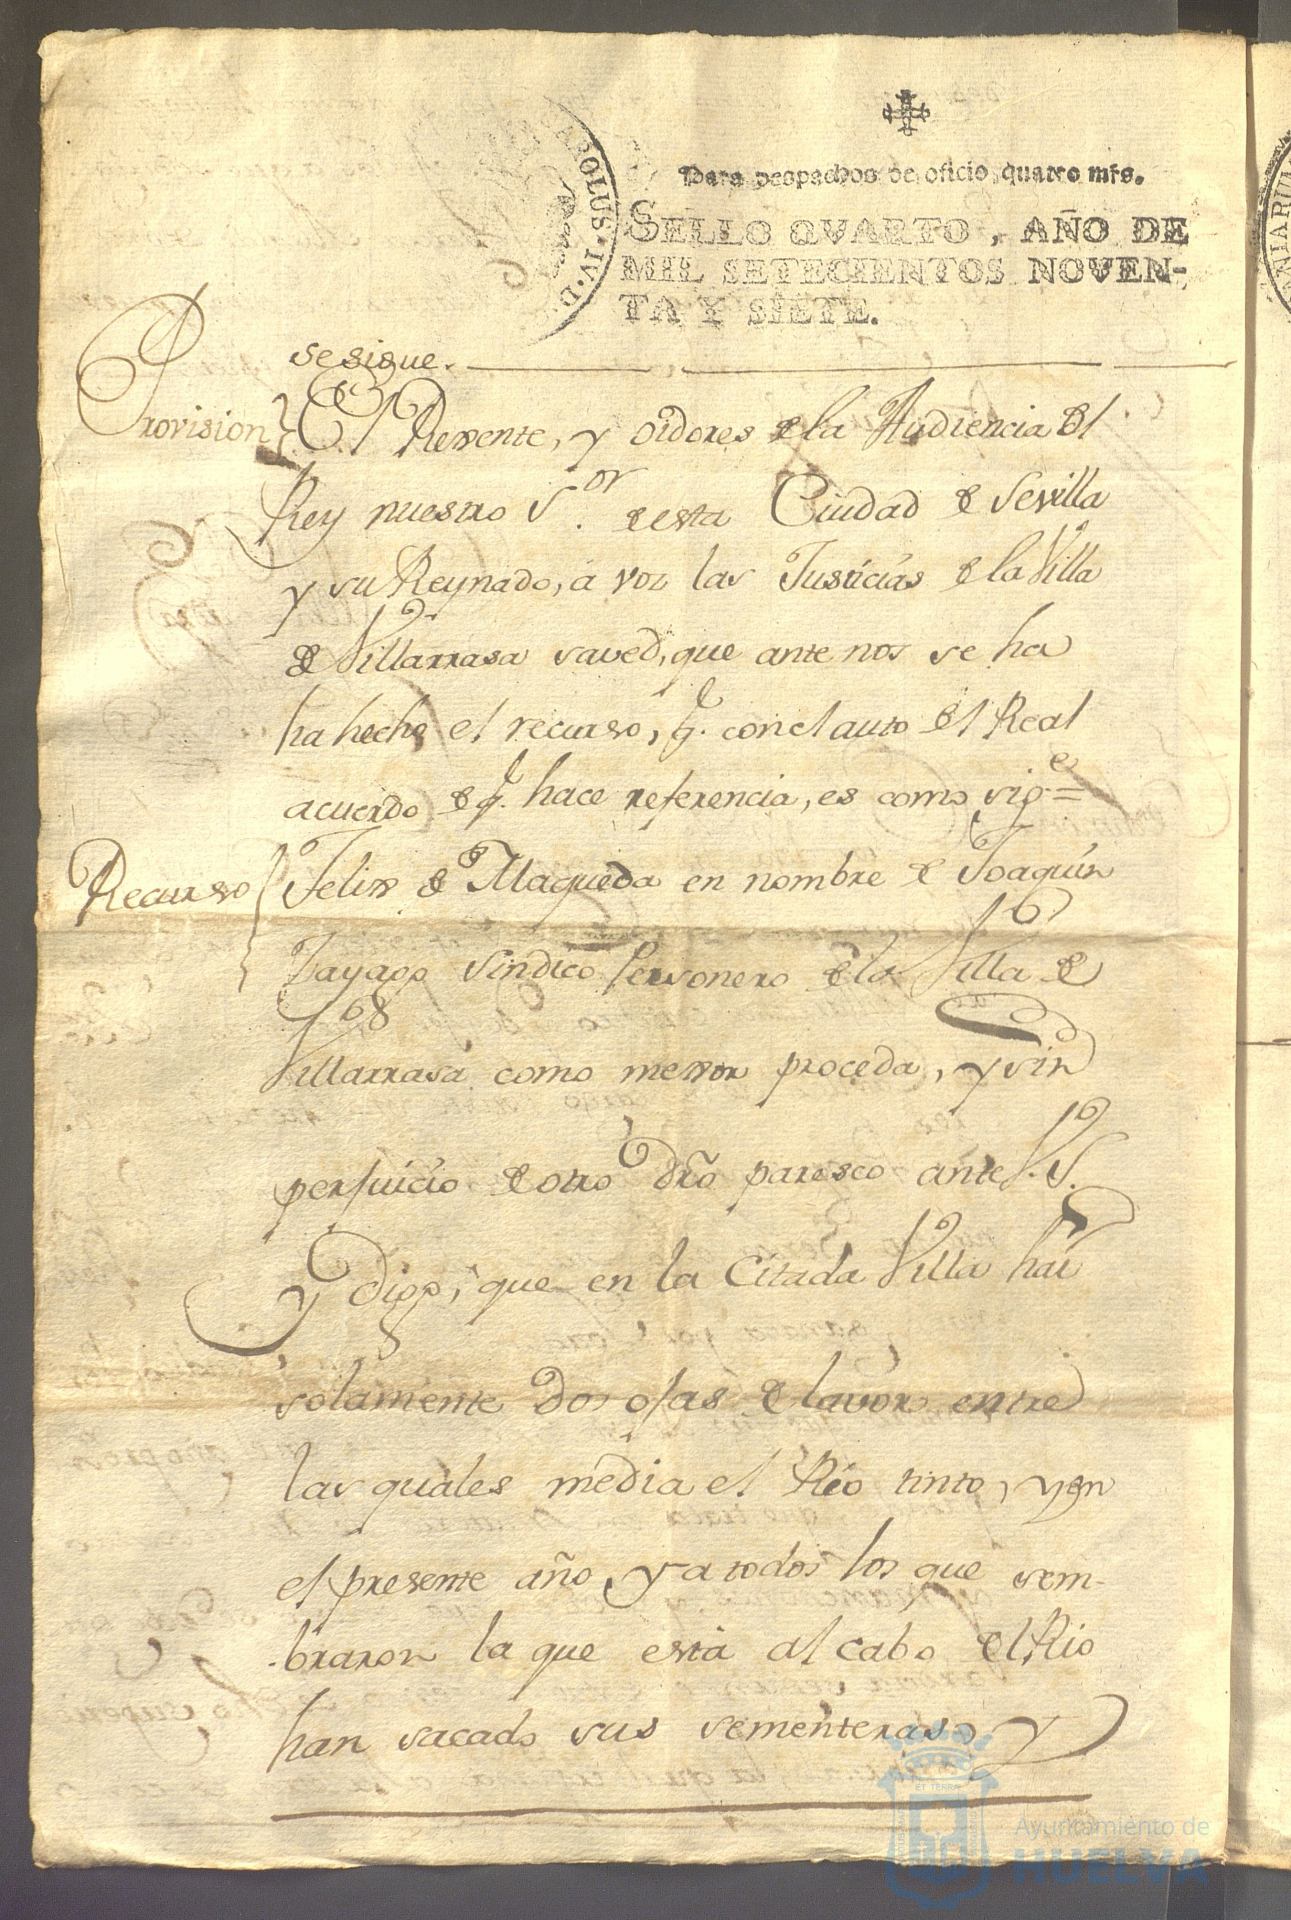 Para despachos de oficio, quatro mrs.
SELLO QVARTO, AÑO DE
MIL SETECIENTOS NOVEN-
TA Y SIETE.
CAROLUS·IV·D·
se sigue.
Provision } El Rexente, y oidores de la Audiencia del
Rey nuestro S.or de esta Ciudad de Sevilla
y su Reynado, a vos las Justicias de la Villa
de Villarrasa saved, que ante nos se ha
ha hecho el recurso, q.e con el auto del Real
acuerdo de q.e hace referencia, es como sig.e =
Recurso { Felix de Maqueda en nombre de Joaquin
Tayago Sindico Personero de la Villa de
Villarrasa como mexor proceda, y sin
perjuicio de otro dro paresco ante V.S.
y digo, que en la Citada Villa hai
solamente dos ojas de lavor entre
las quales media el Rio tinto, y en
el presente año, y a todos los que sem-
braron la que está al cabo del Rio
han sacado sus sementeras, y
ET TERRA
Ayuntamiento de
HUELVA
NIARUM